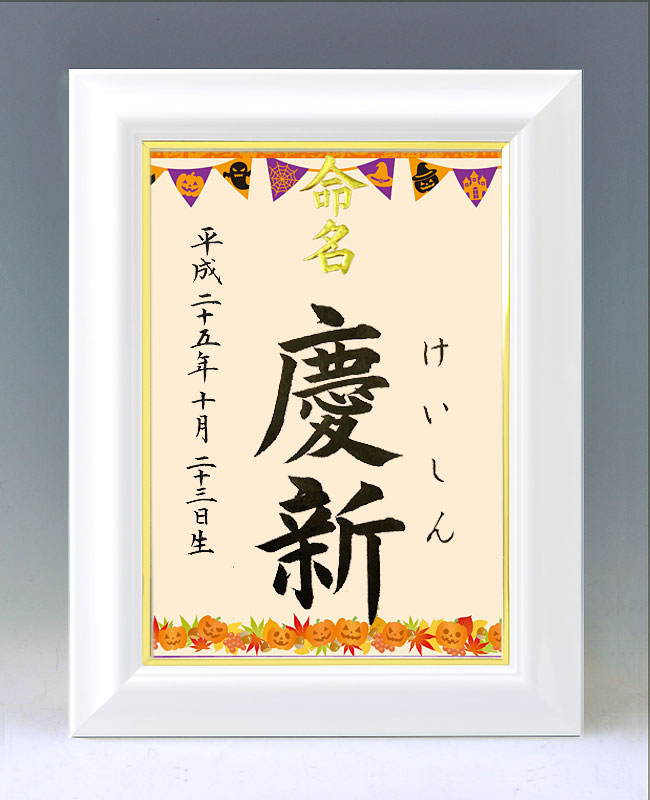 命名
けいしん
慶新
平成二十五年十月二十三日生